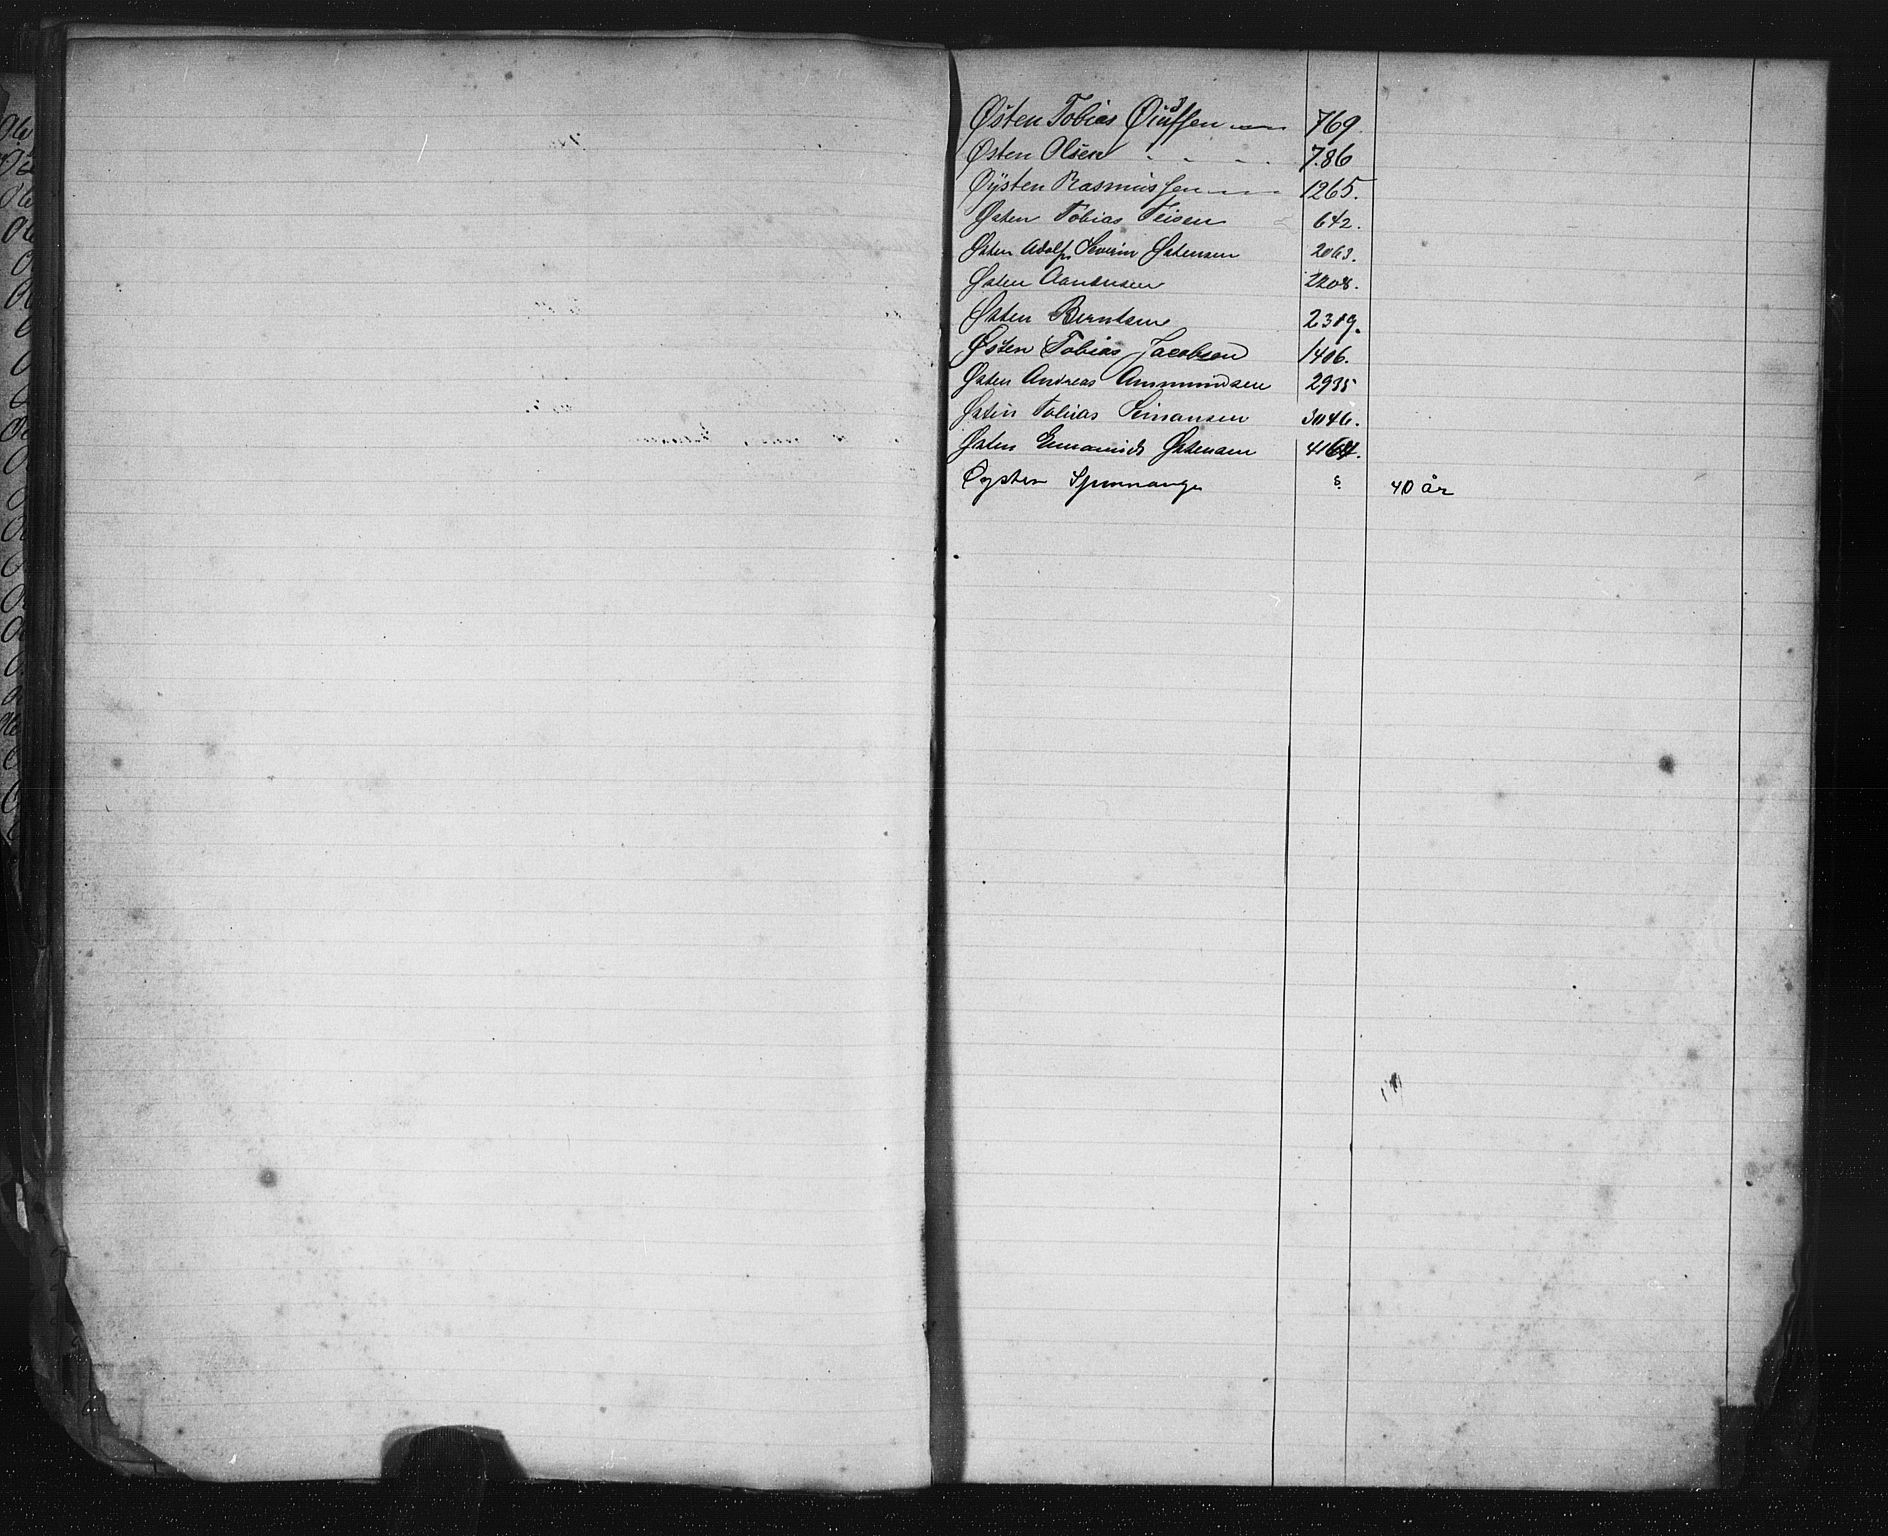 Østen Tobias 769.
Østen Olsen - - - - 786
Øÿsten Rasmussen 1265.
Østen Tobias Teisen 642.
Østen Adolf Severin Østensen 2063.
Østen Aanensen 2208.
Østen Berntsen 2319.
Østen Tobias Jacobsen 1406.
Østen Andreas Ammundsen 2935
Østen Tobias Einarsen 3046.
Østen Østensen 4164.
Øysten Spinnanger s. 40 år